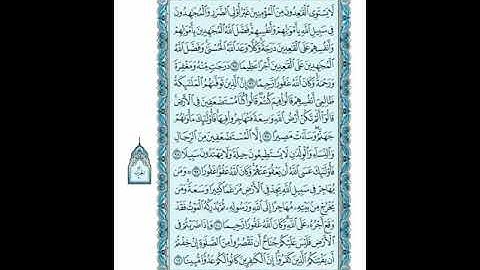 لَّا يَسْتَوِي الْقَٰعِدُونَ مِنَ الْمُؤْمِنِينَ غَيْرُ أُولِي الضَّرَرِ وَالْمُجَٰهِدُونَ
فِي سَبِيلِ اللَّهِ بِأَمْوَٰلِهِمْ وَأَنفُسِهِمْ فَضَّلَ اللَّهُ الْمُجَٰهِدِينَ بِأَمْوَٰلِهِمْ
وَأَنفُسِهِمْ عَلَى الْقَٰعِدِينَ دَرَجَةً وَكُلًّا وَعَدَ اللَّهُ الْحُسْنَىٰ وَفَضَّلَ اللَّهُ
الْمُجَٰهِدِينَ عَلَى الْقَٰعِدِينَ أَجْرًا عَظِيمًا ٩٥ دَرَجَٰتٍ مِّنْهُ وَمَغْفِرَةً
وَرَحْمَةً وَكَانَ اللَّهُ غَفُورًا رَّحِيمًا ٩٦ إِنَّ الَّذِينَ تَوَفَّىٰهُمُ الْمَلَٰئِكَةُ
ظَالِمِي أَنفُسِهِمْ قَالُوا فِيمَ كُنتُمْ قَالُوا كُنَّا مُسْتَضْعَفِينَ فِي الْأَرْضِ
قَالُوا أَلَمْ تَكُنْ أَرْضُ اللَّهِ وَٰسِعَةً فَتُهَاجِرُوا فِيهَا فَأُولَٰئِكَ مَأْوَىٰهُمْ
جَهَنَّمُ وَسَاءَتْ مَصِيرًا ٩٧ إِلَّا الْمُسْتَضْعَفِينَ مِنَ الرِّجَالِ
وَالنِّسَاءِ وَالْوِلْدَٰنِ لَا يَسْتَطِيعُونَ حِيلَةً وَلَا يَهْتَدُونَ سَبِيلًا ٩٨
فَأُولَٰئِكَ عَسَى اللَّهُ أَن يَعْفُوَ عَنْهُمْ وَكَانَ اللَّهُ عَفُوًّا غَفُورًا ٩٩ وَمَن
يُهَاجِرْ فِي سَبِيلِ اللَّهِ يَجِدْ فِي الْأَرْضِ مُرَٰغَمًا كَثِيرًا وَسَعَةً وَمَن
يَخْرُجْ مِن بَيْتِهِ مُهَاجِرًا إِلَى اللَّهِ وَرَسُولِهِ ثُمَّ يُدْرِكْهُ الْمَوْتُ فَقَدْ
وَقَعَ أَجْرُهُ عَلَى اللَّهِ وَكَانَ اللَّهُ غَفُورًا رَّحِيمًا ١٠٠ وَإِذَا ضَرَبْتُمْ فِي
الْأَرْضِ فَلَيْسَ عَلَيْكُمْ جُنَاحٌ أَن تَقْصُرُوا مِنَ الصَّلَوٰةِ إِنْ خِفْتُمْ
أَن يَفْتِنَكُمُ الَّذِينَ كَفَرُوا إِنَّ الْكَٰفِرِينَ كَانُوا لَكُمْ عَدُوًّا مُّبِينًا ١٠١